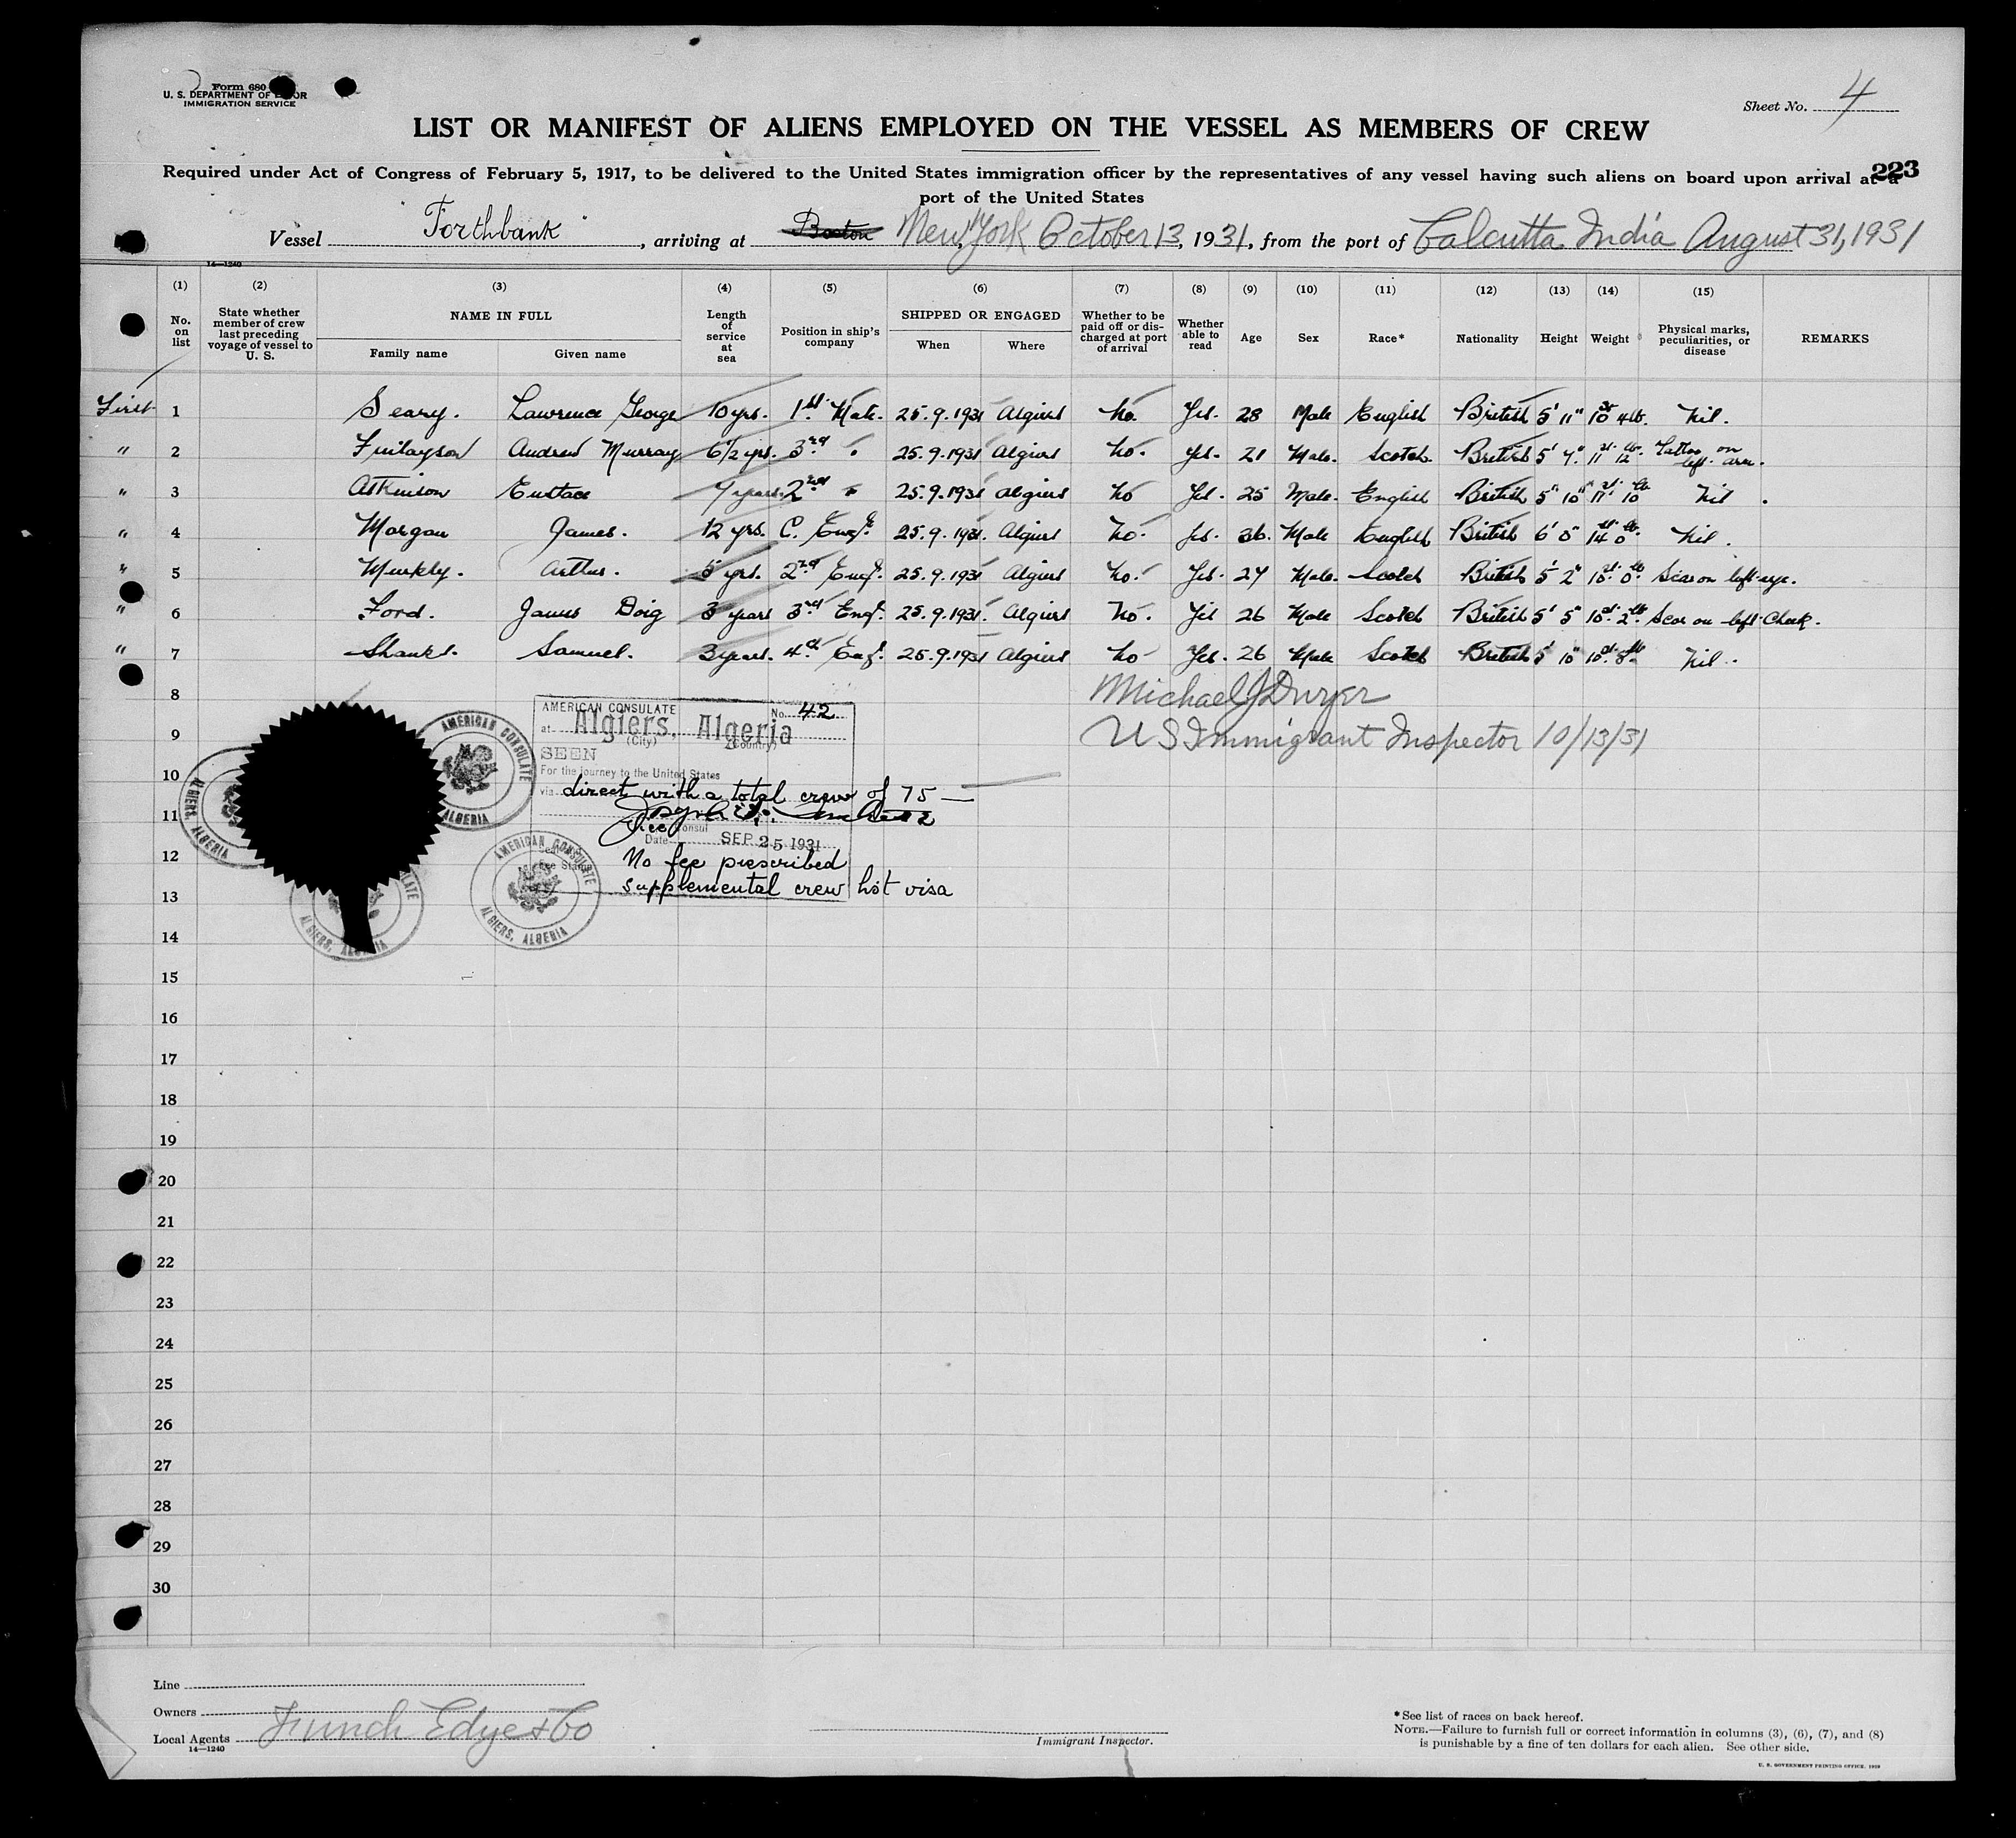 Form 680
U. S. DEPARTMENT OF LABOR
IMMIGRATION SERVICE
Sheet No. 4
LIST OR MANIFEST OF ALIENS EMPLOYED ON THE VESSEL AS MEMBERS OF CREW
223
Required under Act of Congress of February 5, 1917, to be delivered to the United States immigration officer by the representatives of any vessel having such aliens on board upon arrival at a
port of the United States
Vessel "Forthbank", arriving at Boston New York October 13, 1931, from the port of Calcutta India August 31, 1931
14—1240
(1) (2) (3) (4) (5) (6) (7) (8) (9) (10) (11) (12) (13) (14) (15)
No. on list
State whether member of crew last preceding voyage of vessel to U. S.
NAME IN FULL
Family name Given name
Length of service at sea
Position in ship's company
SHIPPED OR ENGAGED
When Where
Whether to be paid off or discharged at port of arrival
Whether able to read
Age Sex Race* Nationality Height Weight
Physical marks, peculiarities, or disease
REMARKS
First 1 Seary. Lawrence George 10 yrs. 1st Mate. 25.9.1931 Algiers No. Yes. 28 Male English British 5' 11" 10 st 4 lb. Nil.
" 2 Finlayson Andrew Murray 6 1/2 yrs. 3rd " 25.9.1931 Algiers No. Yes. 21 Male. Scotch British 5' 7" 11 st 12 lb. Tattoo on left arm.
" 3 Atkinson Eustace 7 years. 2nd " 25.9.1931 Algiers No Yes. 25 Male. English British 5" 10" 11 st 10 lb Nil.
" 4 Morgan James. 12 yrs. C. Engr. 25.9.1931. Algiers No. Yes. 36. Male English British 6' 0" 14 st 0 lb. Nil.
" 5 Arthur. 5 yrs. 2nd Engr. 25.9.1931 Algiers No. Yes. 27 Male. Scotch British 5' 2" 10 st 0 lb Scar on left eye.
" 6 Ford. James Doig 3 years 3rd Engr. 25.9.1931. Algiers No. Yes 26 Male Scotch British 5' 5" 10 st 2 lb Scar on left Cheek.
" 7 Shanks. Samuel. 3 years. 4th Engr. 25.9.1931 Algiers No Yes. 26 Male Scotch British 5' 10" 10 st 8 lb Nil.
8
Michael J Dwyer
9
U S Immigrant Inspector 10/13/31
AMERICAN CONSULATE
No. 42
at Algiers, Algeria
(City) (Country)
SEEN
For the journey to the United States
via direct with a total crew of 75
Vice Consul
Date SEP 25 1931
No fee prescribed
supplemental crew list visa
AMERICAN CONSULATE
ALGIERS, ALGERIA
AMERICAN CONSULATE
ALGIERS, ALGERIA
10
11
12
13
14
15
16
17
18
19
20
21
22
23
24
25
26
27
28
29
30
Line
Owners
Local Agents Funch Edye & Co
14—1240
Immigrant Inspector.
*See list of races on back hereof.
NOTE.—Failure to furnish full or correct information in columns (3), (6), (7), and (8)
is punishable by a fine of ten dollars for each alien. See other side.
U. S. GOVERNMENT PRINTING OFFICE: 1929